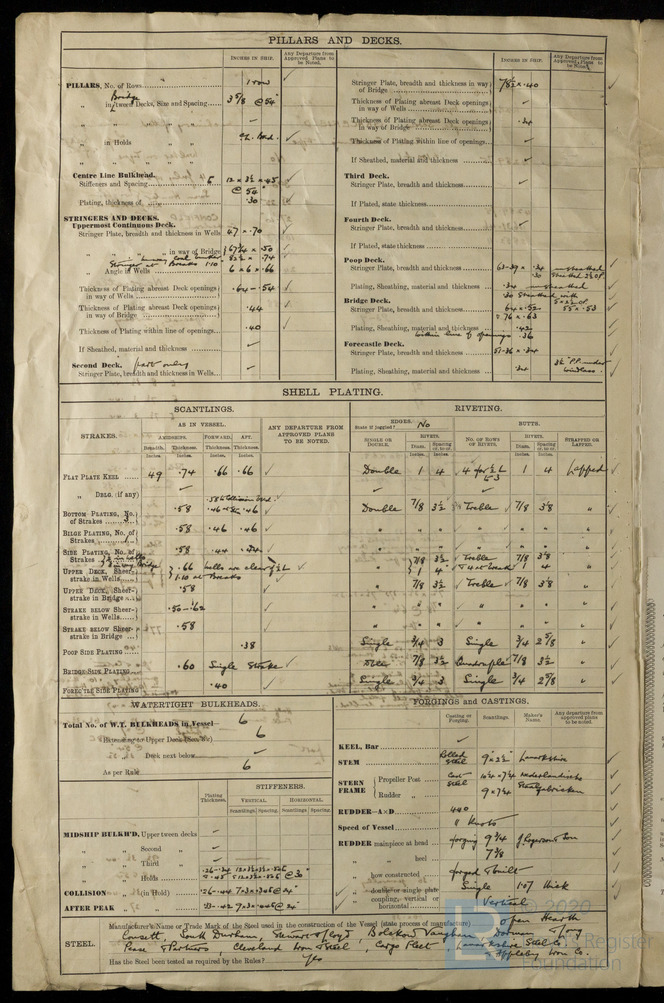 PILLARS AND DECKS.
INCHES IN SHIP.
Any Departure from Approved Plans to be Noted.
PILLARS, No. of Rows
1 row
Bridge
„ in 'tween Decks, Size and Spacing
3 5/8 @ 54"
„ in Holds
Centre Line Bulkhead.
Stiffeners and Spacing
12 × 3½ × .45
@ 54"
Plating, thickness of
.30
STRINGERS AND DECKS.
Uppermost Continuous Deck.
Stringer Plate, breadth and thickness in Wells
47 × .70
„ „ „ in way of Bridge
67¾ × .50
„ Angle in Wells
6 × 6 × .66
Thickness of Plating abreast Deck openings in way of Wells
.64 - .54
Thickness of Plating abreast Deck openings in way of Bridge
.44
Thickness of Plating within line of openings
.40
If Sheathed, material and thickness
Second Deck. part only
Stringer Plate, breadth and thickness in Wells
INCHES IN SHIP.
Any Departure from Approved Plans to be Noted.
Stringer Plate, breadth and thickness in way of Bridge
78½ × .40
Thickness of Plating abreast Deck openings in way of Wells
Thickness of Plating abreast Deck openings in way of Bridge
.34
Thickness of Plating within line of openings
If Sheathed, material and thickness
Third Deck.
Stringer Plate, breadth and thickness
If Plated, state thickness
Fourth Deck.
Stringer Plate, breadth and thickness
If Plated, state thickness
Poop Deck.
Stringer Plate, breadth and thickness
Plating, Sheathing, material and thickness
.34 sheathed
.30 Sheathed with
Bridge Deck.
Stringer Plate, breadth and thickness
64 × .52
.76 × .63
Plating, Sheathing, material and thickness
.42
within line of openings .36
Forecastle Deck.
Stringer Plate, breadth and thickness
51-36 × .34
Plating, Sheathing, material and thickness
.34
3½" P.P. under windlass.
SHELL PLATING.
SCANTLINGS.
RIVETING.
STRAKES.
AS IN VESSEL.
AMIDSHIPS.
FORWARD.
AFT.
Breadth.
Thickness.
Thickness.
Thickness.
Inches.
ANY DEPARTURE FROM APPROVED PLANS TO BE NOTED.
EDGES.
State if joggled? No
SINGLE OR DOUBLE.
RIVETS.
Diam.
Spacing cr. to cr.
BUTTS.
NO. OF ROWS OF RIVETS.
RIVETS.
Diam.
Spacing cr. to cr.
STRAPPED OR LAPPED.
FLAT PLATE KEEL 49 .74 .66 .66 Double 1 4 4 for ½ L to 3 1 4 Lapped
„ DBLG. (if any)
BOTTOM PLATING, No. of Strakes .58 .46 Double 7/8 3½ Treble 7/8 3 1/8 „
BILGE PLATING, No. of Strakes .58 .46 .46 „ „ „ „ „ „ „
SIDE PLATING, No. of Strakes .58 .44 .44 „ „ „ „ „ „ „
UPPER DECK, Sheerstrake in Wells .66 wells are clear of ½ L
1.10 at Breaks
7/8 3½ Treble 7/8 3 1/8
1 4 1 4
UPPER DECK, Sheerstrake in Bridge .58 „ 7/8 3½ Treble 7/8 3 1/8 „
STRAKE BELOW SHEERstrake in Wells .50 - .62 „ „ „ „ „ „ „
STRAKE BELOW SHEERstrake in Bridge .58 „ „ „ „ „ „ „
POOP SIDE PLATING .38 Single 3/4 3 Single 3/4 2 5/8 „
BRIDGE SIDE PLATING .60 Single Strake Dble 7/8 3½ Quadruple 7/8 3½ „
FORECTLE SIDE PLATING .40 Single 3/4 3 Single 3/4 2 5/8 „
WATERTIGHT BULKHEADS.
Total No. of W.T. BULKHEADS in Vessel 6
Extending to Upper Deck 6
„ Deck next below
As per Rule 6
Plating Thickness.
STIFFENERS.
VERTICAL.
HORIZONTAL.
Scantlings.
Spacing.
Scantlings.
Spacing.
MIDSHIP BULKH'D, Upper tween decks
„ „ Second „
„ „ Third „
„ „ Holds
@ 30"
COLLISION „ (in Hold)
.26 - .44 @ 24"
AFTER PEAK „ „
@ 24"
FORGINGS AND CASTINGS.
Casting or Forging.
Scantlings.
Maker's Name.
Any departure from approved plans to be noted.
KEEL, Bar
STEM Rolled Steel 9" × 2½" Lanarkshire
STERN FRAME
Propeller Post Cast Steel 10¼ × 7¼ Nederlandische
Rudder „ 9 × 7¼ Staalfabrieken
RUDDER—A × D 440
Speed of Vessel 11 Knots
RUDDER mainpiece at head forging 9¾ J Rogerson & Son
„ „ heel 7 3/8
„ how constructed forged & built
„ double or single plate Single 1.07 thick
„ coupling, vertical or horizontal Vertical
STEEL.
Manufacturer's Name or Trade Mark of the Steel used in the construction of the Vessel (state process of manufacture) Open Hearth
Consett, South Durham, Stewart & Lloyd, Bolckow Vaughan, Dorman Long
Pease & Partners, Cleveland Iron & Steel, Cargo Fleet, Lanarkshire Steel Co
Appleby Iron Co.
Has the Steel been tested as required by the Rules? Yes
© 2020
Lloyd's Register
Foundation